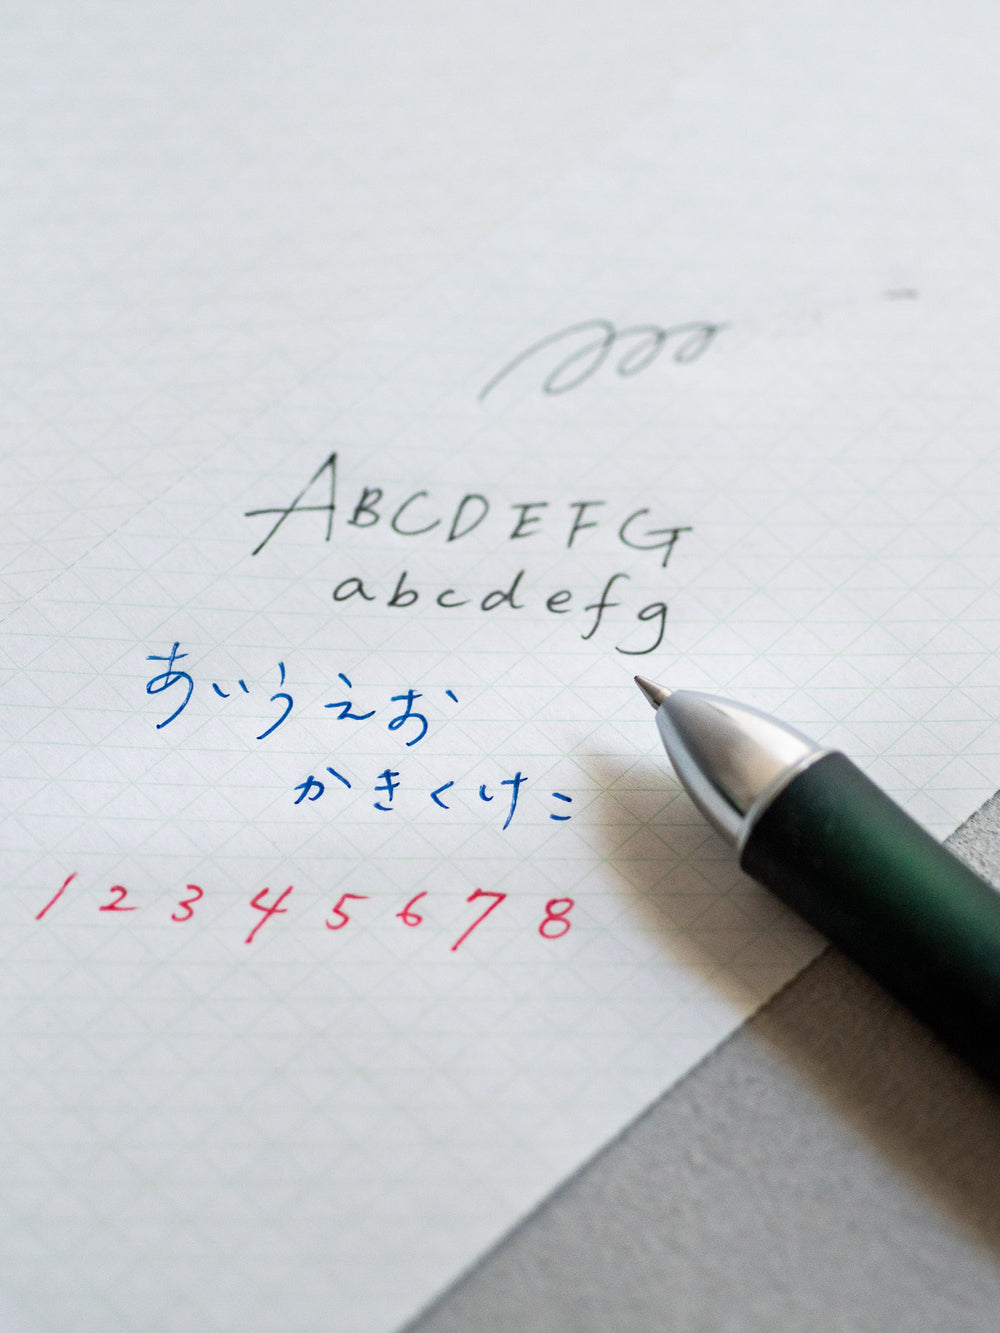 ABCDEFG
abcdefg
あいうえお
かきくけこ
12345678